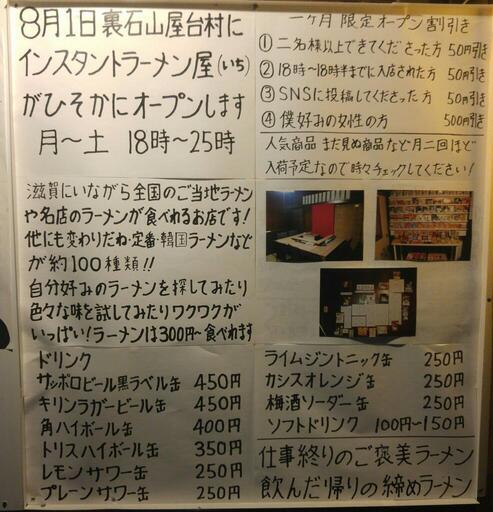 8月1日裏石山屋台村に
インスタントラーメン屋(いち)
がひそかにオープンします
月〜土 18時〜25時
一ヶ月限定オープン割引き
①二名様以上できてくださった方 50円引き
②18時〜18時半までに入店された方 50円引き
③SNSに投稿してくださった方 50円引き
④僕好みの女性の方 500円引き
人気商品 まだ見ぬ商品など月二回ほど
入荷予定なので時々チェックしてください!
滋賀にいながら全国のご当地ラーメン
や名店のラーメンが食べれるお店です!
他にも変わりだね・定番・韓国ラーメンなど
が約100種類!!
自分好みのラーメンを探してみたり
色々な味を試してみたりワクワクが
いっぱい!ラーメンは300円〜食べれます
ドリンク
サッポロビール黒ラベル缶 450円
キリンラガービール缶 450円
角ハイボール缶 400円
トリスハイボール缶 350円
レモンサワー缶 250円
プレーンサワー缶 250円
ライムジントニック缶 250円
カシスオレンジ缶 250円
梅酒ソーダー缶 250円
ソフトドリンク 100円〜150円
仕事終りのご褒美ラーメン
飲んだ帰りの締めラーメン